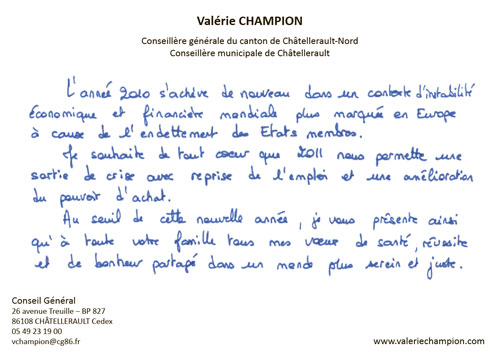 Valérie CHAMPION
Conseillère générale du canton de Châtellerault-Nord
Conseillère municipale de Châtellerault
L'année 2010 s'achève de nouveau dans un contexte d'instabilité
économique et financière mondiale plus marquée en Europe
à cause de l'endettement des Etats membres.
Je souhaite de tout coeur que 2011 nous permette une
sortie de crise avec reprise de l'emploi et une amélioration
du pouvoir d'achat.
Au seuil de cette nouvelle année, je vous présente ainsi
qu'à toute votre famille tous mes vœux de santé, réussite
et de bonheur partagé dans un monde plus serein et juste.
Conseil Général
26 avenue Treuille – BP 827
86108 CHÂTELLERAULT Cedex
05 49 23 19 00
vchampion@cg86.fr
www.valeriechampion.com